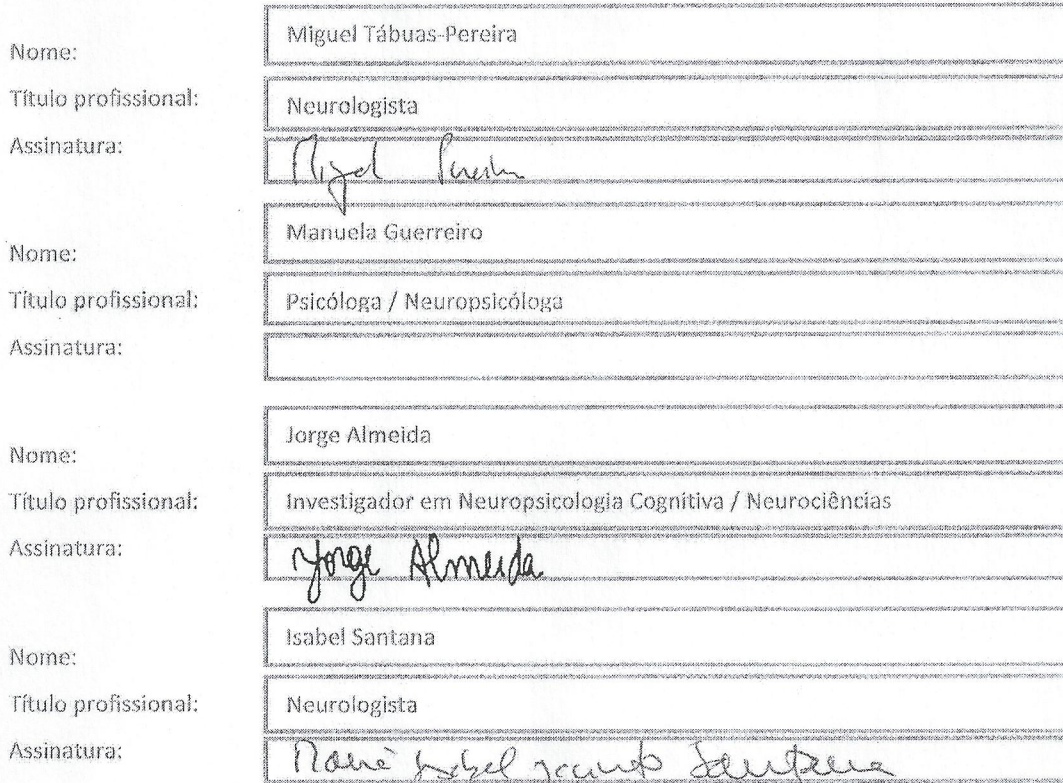 Nome: Miguel Tábuas-Pereira
Título profissional: Neurologista
Assinatura: Miguel Pereira
Nome: Manuela Guerreiro
Título profissional: Psicóloga / Neuropsicóloga
Assinatura:
Nome: Jorge Almeida
Título profissional: Investigador em Neuropsicologia Cognitiva / Neurociências
Assinatura: Jorge Almeida
Nome: Isabel Santana
Título profissional: Neurologista
Assinatura: Maria Isabel Santana